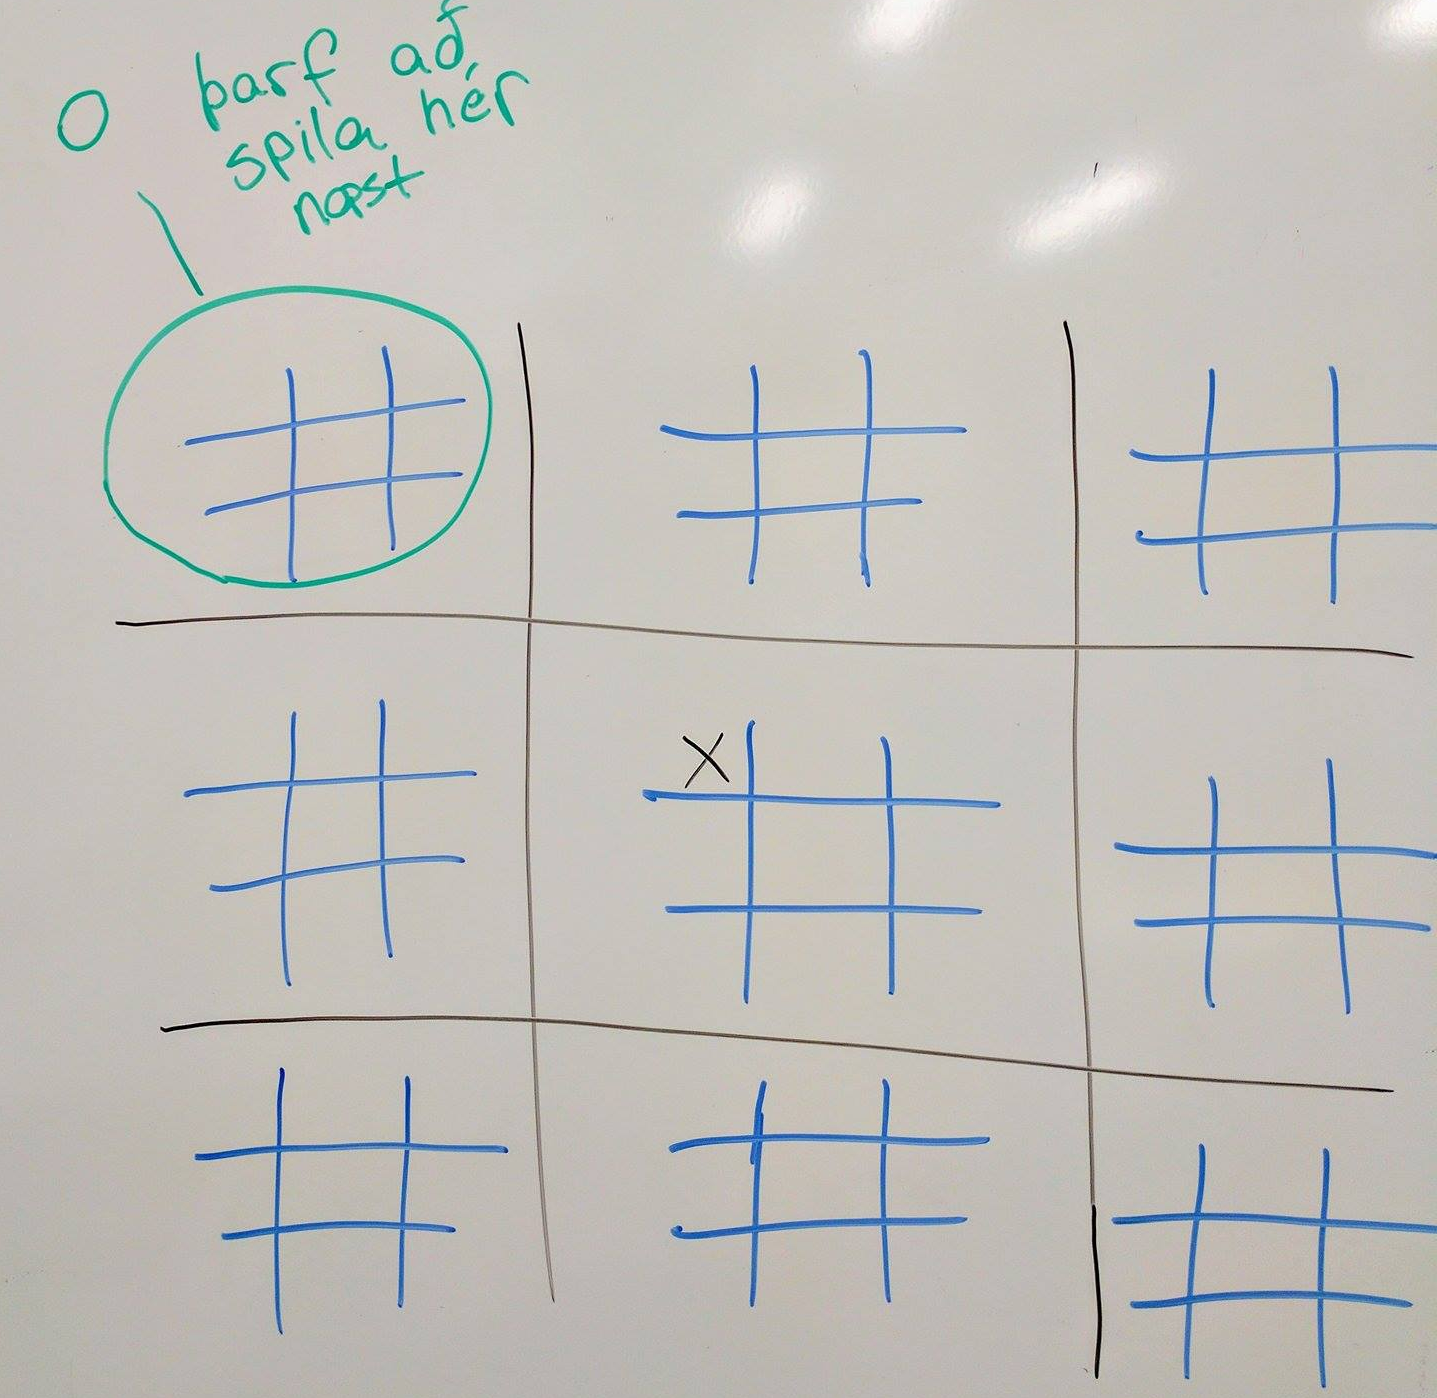 O þarf að
spila hér
næst
X